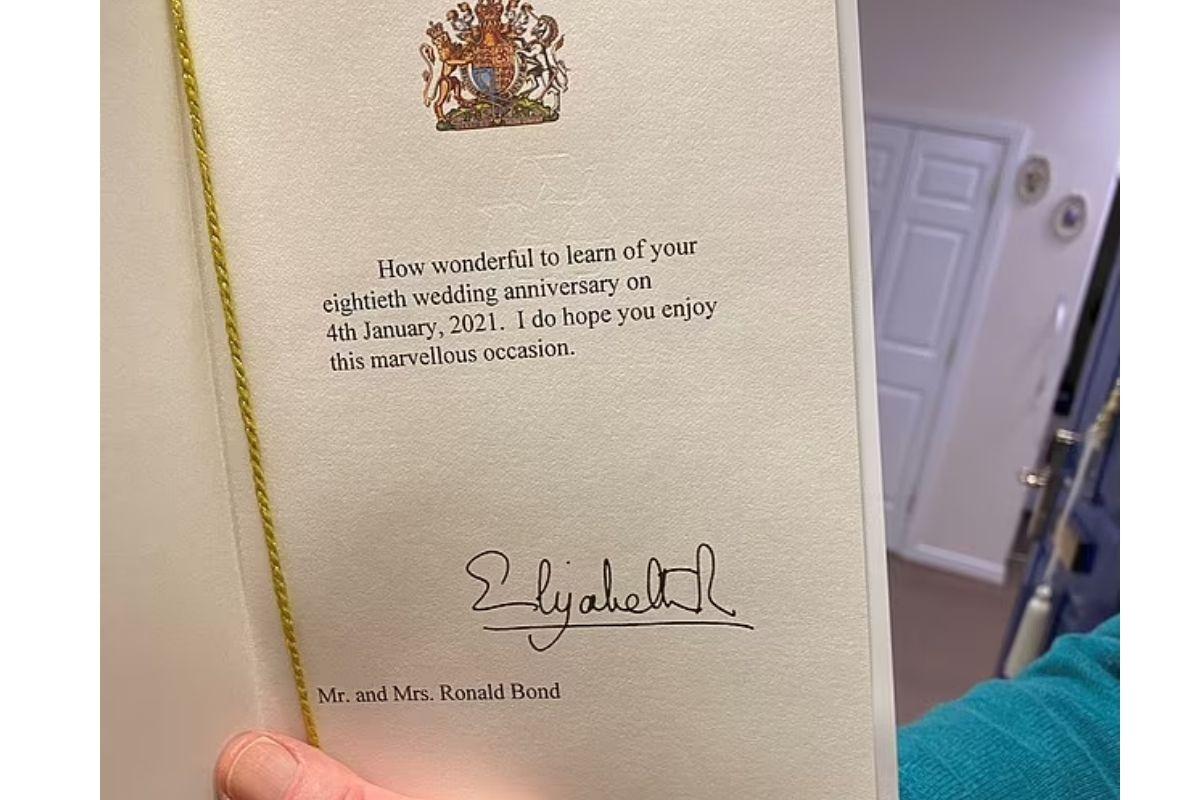 How wonderful to learn of your
eightieth wedding anniversary on
4th January, 2021. I do hope you enjoy
this marvellous occasion.
Elizabeth R
Mr. and Mrs. Ronald Bond